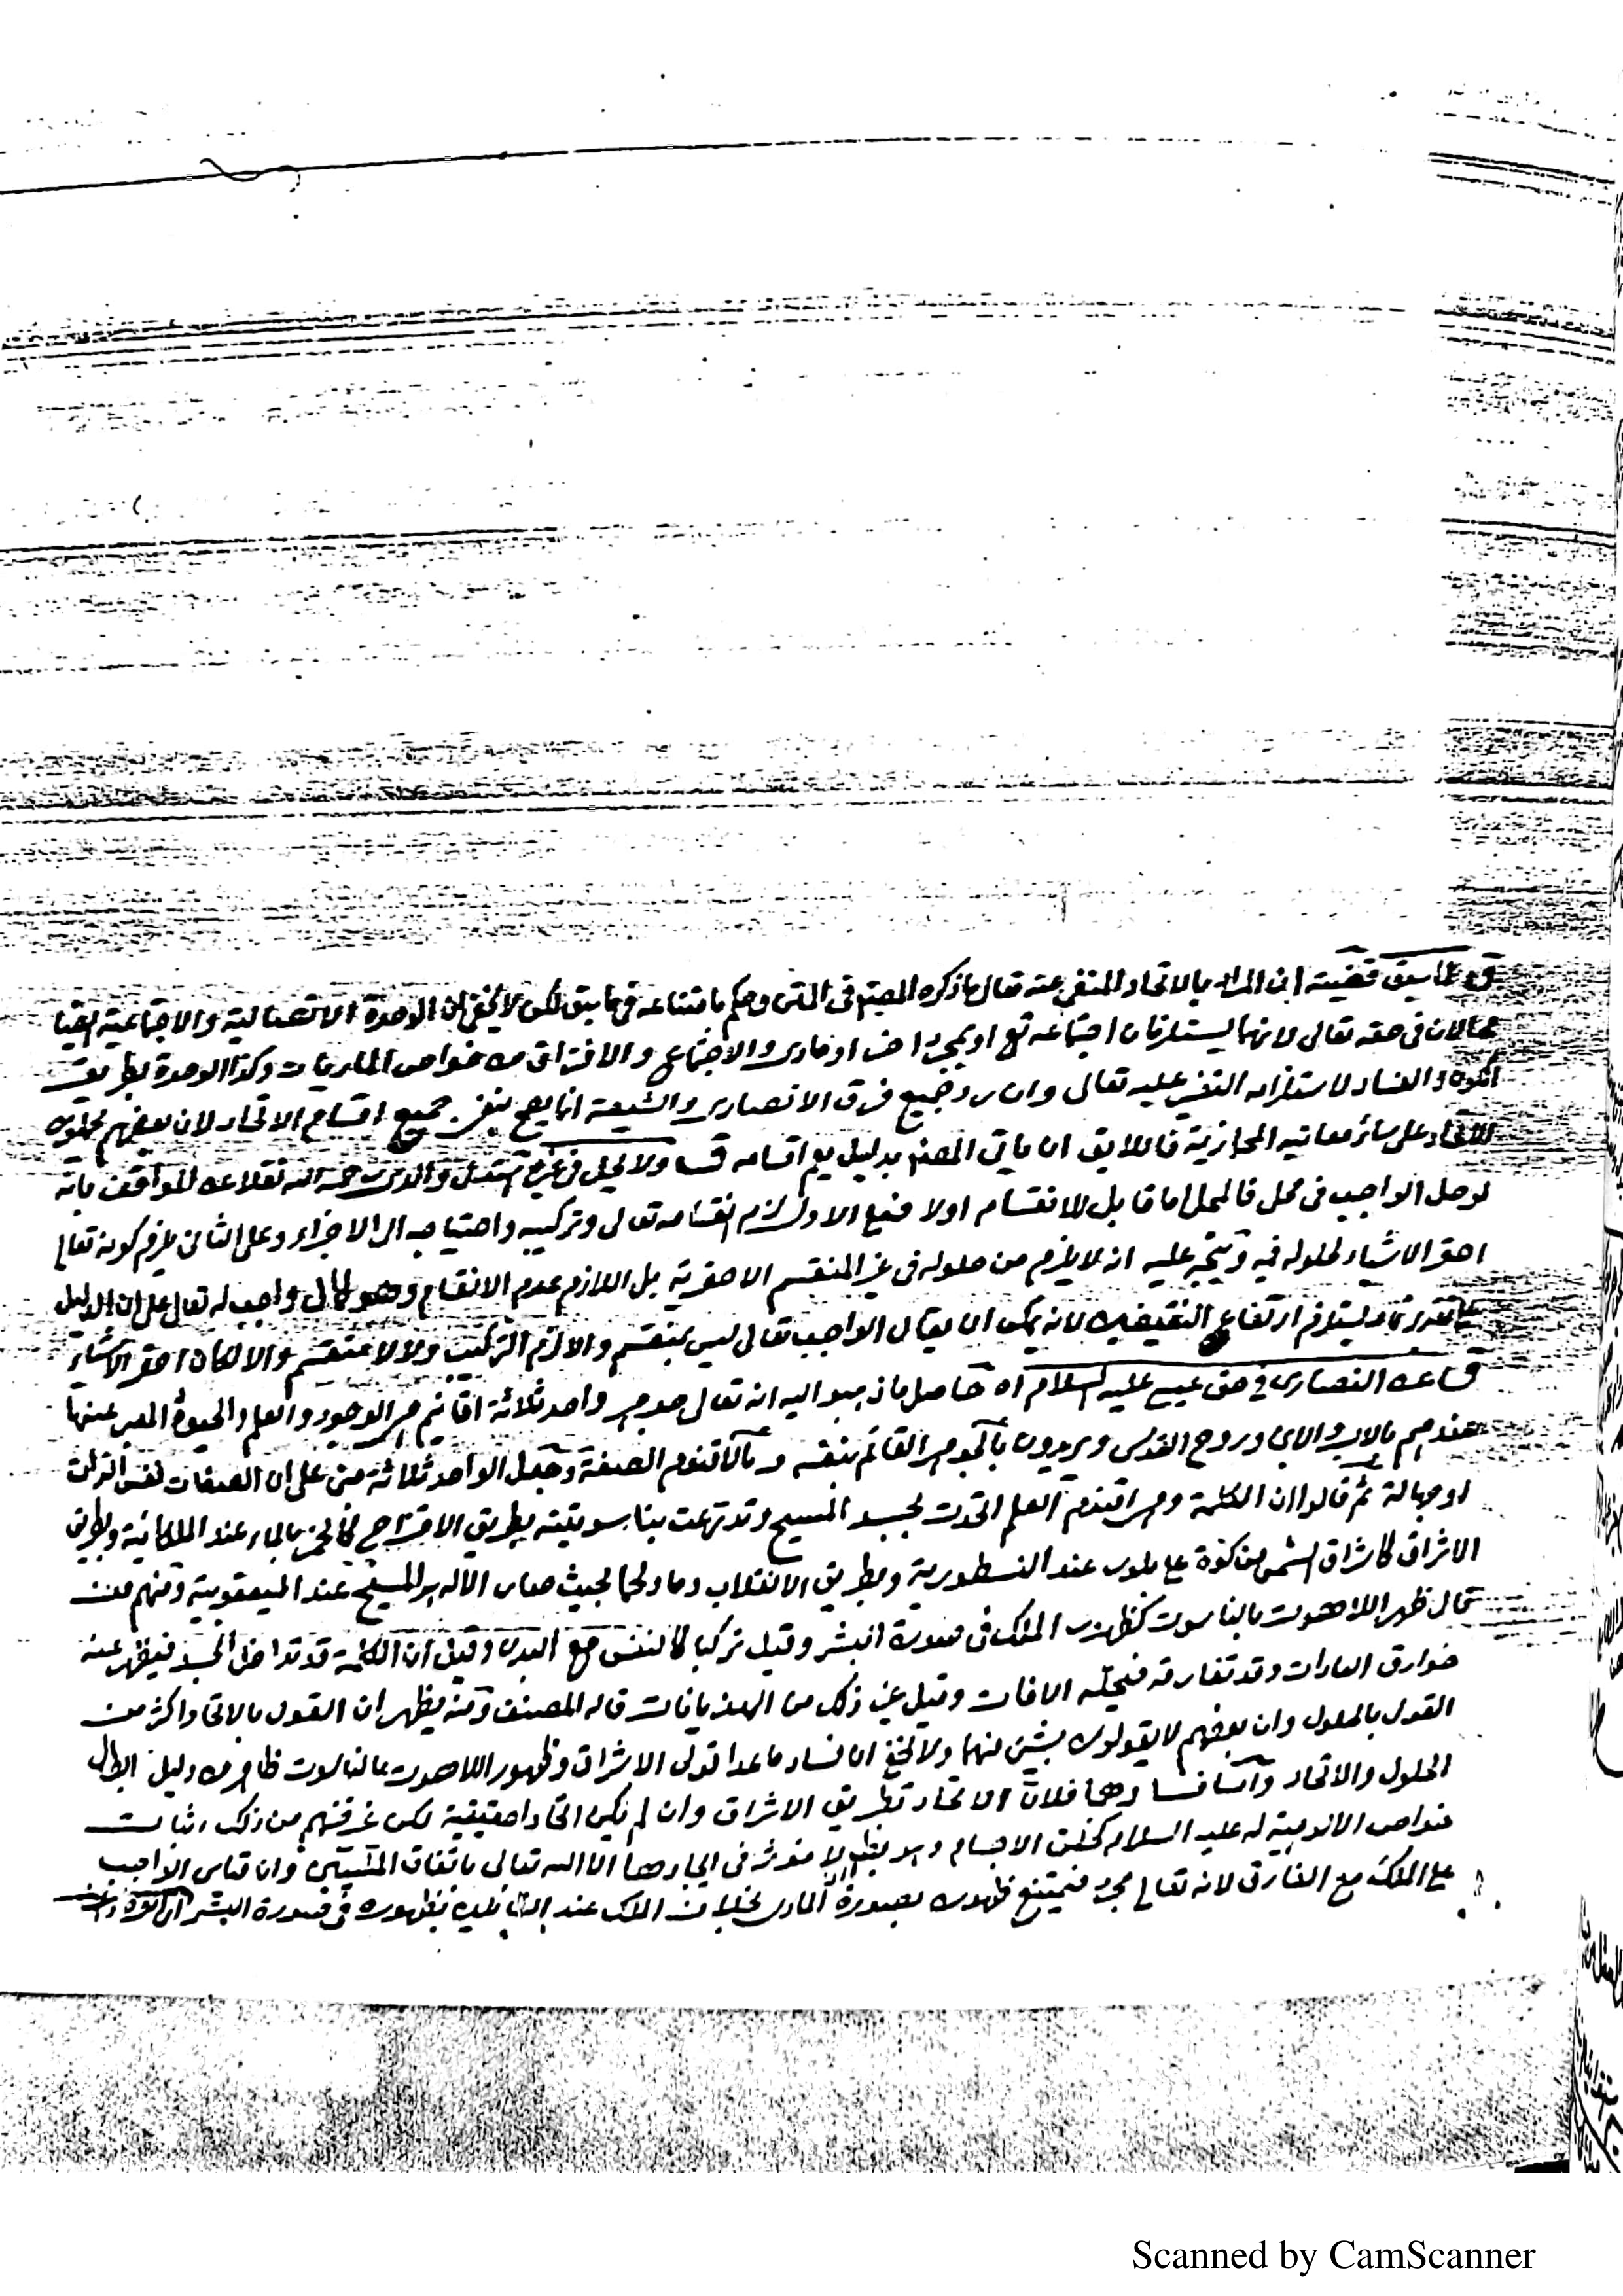 قوله لما سبق قضيته ان المراد بالاتحاد المنفي عنه تعالى ما ذكره المصنف في المتن وحكم بامتناعه في ما سبق لكن لا يخفى ان الوحدة الاتصالية والاجتماعية ايضا
محالان في حقه تعالى لانهما يستلزمان اجتماعه تع او بمجرد اخر او مادى والاجتماع والافتراق من خواص الماديات وكذا الوحدة بطريق
الكون والفساد لاستلزامه التغير عليه تعالى وان رد جميع فرق النصارى والشيعة انما يصح بنفى جميع اقسام الاتحاد لان بعضهم يحملون
الاتحاد على سائر معانيه المجازية فاللايق ان ياتى المصنف بدليل يعم اقسامه قوله ولا يحل في غيره استدل والدى رحمه الله نقلا عن المواقف بانه
لو حل الواجب في محل فالمحل اما قابل للانقسام اولا فعلى الاول لزم انقسامه تعالى وتركيبه واحتياجه الى الاجزاء وعلى الثانى يلزم كونه تعالى
احقر الاشياء لحلوله فيه ويتجه عليه انه لا يلزم من حلوله في غير المنقسم الاحقرية بل اللازم عدم الانقسام وهو كمال واجب له تعالى على ان الدليل
على تقدير تمامه يستلزم ارتفاع النقيضين لانه يمكن ان يقال الواجب تعالى ليس بمنقسم والا لزم التركيب ولا لا منقسم والا لكان احقر الاشياء
قوله عن النصارى في حق عيسى عليه السلام اه حاصل ما ذهبوا اليه انه تعالى جوهر واحد ثلاثة اقانيم هى الوجود والعلم والحيوة المعبر عنها
عندهم بالاب والابن وروح القدس ويريدون بالجوهر القائم بنفسه وبالاقنوم الصفة وجعل الواحد ثلاثة مبنى على ان الصفات نفس الذات
او جهالة ثم قالوا ان الكلمة وهى اقنوم العلم اتحدت بجسد المسيح وتدرعت بناسوتيته بطريق الامتزاج كالخمر بالماء عند الملكانية وبطريق
الاشراق كاشراق الشمس من كوة على بلور عند النسطورية وبطريق الانقلاب دما ولحما بحيث صار الاله هو المسيح عند اليعقوبية ومنهم من
قال ظهر اللاهوت بالناسوت كظهور الملك في صورة البشر وقيل تركبا كالنفس مع البدن وقيل ان الكلمة قد تداخل الجسد فيظهر عنه
خوارق العادات وقد تفارقه فتحله الافات وقيل غير ذلك من الهذيانات قاله المصنف ومنه يظهر ان القول بالاتحاد اكثر من
القول بالحلول وان بعضهم لا يقولون بشيئ منهما ولا يخفى ان فساد ما عدا قولى الاشراق وظهور اللاهوت بالناسوت ظاهر من دليل ابطال
الحلول والاتحاد واما فسادهما فلان الاتحاد بطريق الاشراق وان لم يكن اتحادا حقيقية لكن غرضهم من ذلك اثبات
خواص الالوهية له عليه السلام كخلق الاجسام وهو باطل اذ لا مؤثر في ايجادها الا الله تعالى باتفاق المتكلمين وان قياس الواجب
على الملك مع الفارق لانه تعالى مجرد فيمتنع ظهوره بصورة المادى بخلاف الملك عند القائلين بظهوره في صورة البشر
Scanned by CamScanner